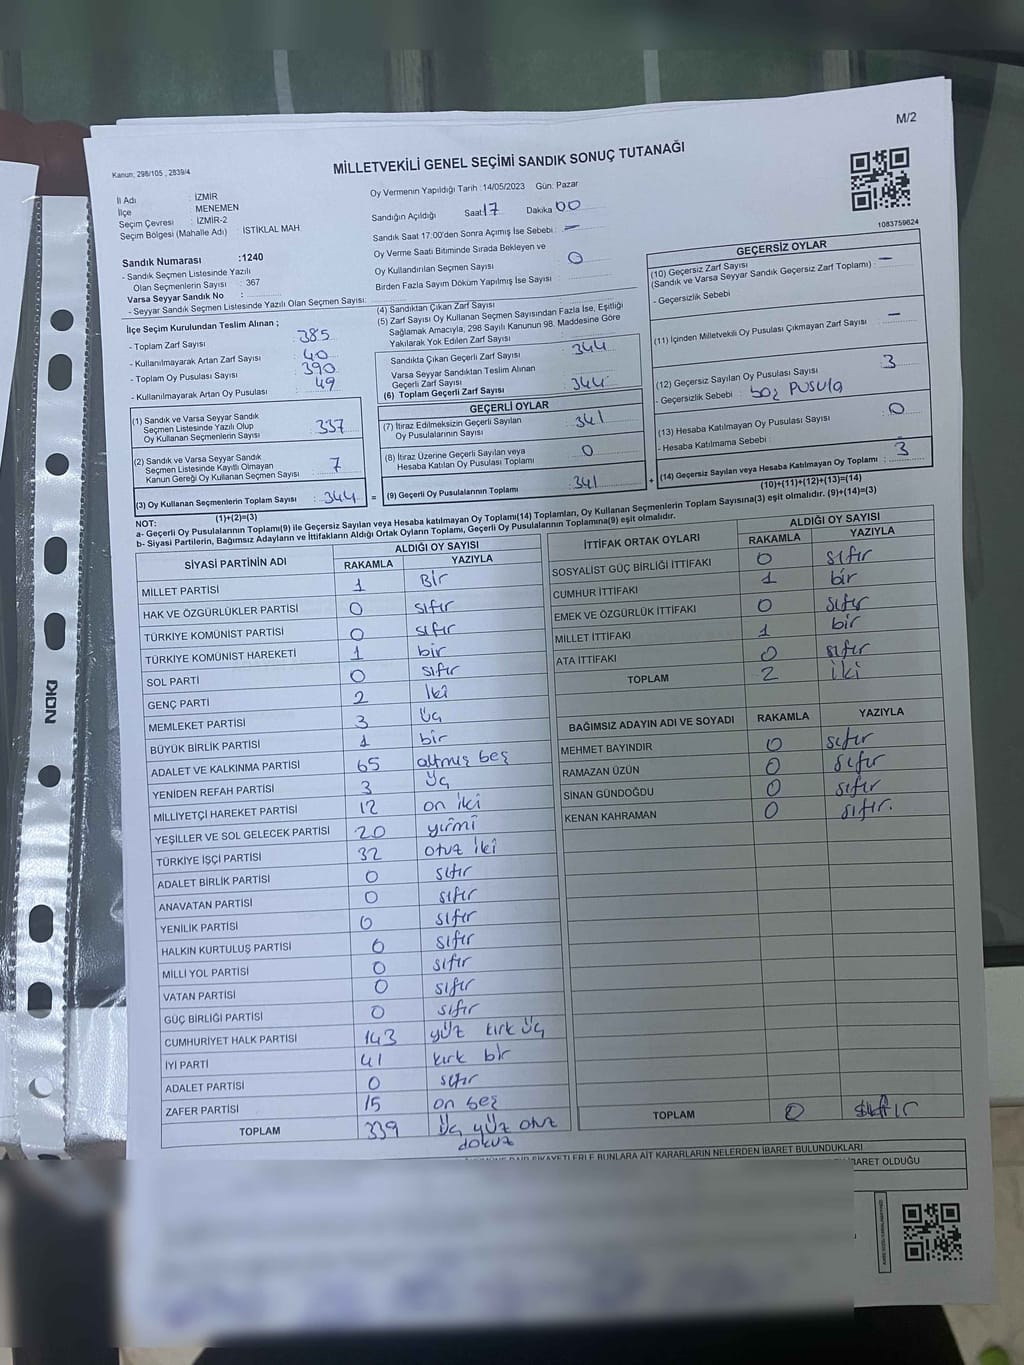 M/2
Kanun: 298/105 , 2839/4
MİLLETVEKİLİ GENEL SEÇİMİ SANDIK SONUÇ TUTANAĞI
1083759824
İl Adı : İZMİR
İlçe : MENEMEN
Seçim Çevresi : İZMİR-2
Seçim Bölgesi (Mahalle Adı) : İSTİKLAL MAH
Sandık Numarası :1240
- Sandık Seçmen Listesinde Yazılı
Olan Seçmenlerin Sayısı : 367
Varsa Seyyar Sandık No :
- Seyyar Sandık Seçmen Listesinde Yazılı Olan Seçmen Sayısı:
İlçe Seçim Kurulundan Teslim Alınan ;
- Toplam Zarf Sayısı : 385
- Kullanılmayarak Artan Zarf Sayısı : 40
- Toplam Oy Pusulası Sayısı : 390
- Kullanılmayarak Artan Oy Pusulası : 49
(1) Sandık ve Varsa Seyyar Sandık
Seçmen Listesinde Yazılı Olup
Oy Kullanan Seçmenlerin Sayısı : 337
(2) Sandık ve Varsa Seyyar Sandık
Seçmen Listesinde Kayıtlı Olmayan
Kanun Gereği Oy Kullanan Seçmen Sayısı : 7
(3) Oy Kullanan Seçmenlerin Toplam Sayısı : 344 =
(1)+(2)=(3)
Oy Vermenin Yapıldığı Tarih :14/05/2023 Gün: Pazar
Sandığın Açıldığı Saat 17 Dakika 00
Sandık Saat 17:00'den Sonra Açımış İse Sebebi : —
Oy Verme Saati Bitiminde Sırada Bekleyen ve
Oy Kullandırılan Seçmen Sayısı : 0
Birden Fazla Sayım Döküm Yapılmış İse Sayısı :
(4) Sandıktan Çıkan Zarf Sayısı :
(5) Zarf Sayısı Oy Kullanan Seçmen Sayısından Fazla İse, Eşitliği
Sağlamak Amacıyla, 298 Sayılı Kanunun 98. Maddesine Göre
Yakılarak Yok Edilen Zarf Sayısı :
Sandıkta Çıkan Geçerli Zarf Sayısı : 344
Varsa Seyyar Sandıktan Teslim Alınan
Geçerli Zarf Sayısı
(6) Toplam Geçerli Zarf Sayısı : 344
GEÇERLİ OYLAR
(7) İtiraz Edilmeksizin Geçerli Sayılan
Oy Pusulalarının Sayısı : 341
(8) İtiraz Üzerine Geçerli Sayılan veya
Hesaba Katılan Oy Pusulası Toplamı : 0
(9) Geçerli Oy Pusulalarının Toplamı : 341 +
GEÇERSİZ OYLAR
(10) Geçersiz Zarf Sayısı
(Sandık ve Varsa Seyyar Sandık Geçersiz Zarf Toplamı) : —
- Geçersizlik Sebebi
(11) İçinden Milletvekili Oy Pusulası Çıkmayan Zarf Sayısı : —
(12) Geçersiz Sayılan Oy Pusulası Sayısı : 3
- Geçersizlik Sebebi : boş pusula
(13) Hesaba Katılmayan Oy Pusulası Sayısı : 0
- Hesaba Katılmama Sebebi :
(14) Geçersiz Sayılan veya Hesaba Katılmayan Oy Toplamı : 3
(10)+(11)+(12)+(13)=(14)
NOT:
a- Geçerli Oy Pusulalarının Toplamı(9) ile Geçersiz Sayılan veya Hesaba katılmayan Oy Toplamı(14) Toplamları, Oy Kullanan Seçmenlerin Toplam Sayısına(3) eşit olmalıdır. (9)+(14)=(3)
b- Siyasi Partilerin, Bağımsız Adayların ve İttifakların Aldığı Ortak Oyların Toplamı, Geçerli Oy Pusulalarının Toplamına(9) eşit olmalıdır.
SİYASİ PARTİNİN ADI ALDIĞI OY SAYISI
RAKAMLA YAZIYLA
MİLLET PARTİSİ 1 Bir
HAK VE ÖZGÜRLÜKLER PARTİSİ 0 sıfır
TÜRKİYE KOMÜNİST PARTİSİ 0 sıfır
TÜRKİYE KOMÜNİST HAREKETİ 1 bir
SOL PARTİ 0 sıfır
GENÇ PARTİ 2 iki
MEMLEKET PARTİSİ 3 üç
BÜYÜK BİRLİK PARTİSİ 1 bir
ADALET VE KALKINMA PARTİSİ 65 altmış beş
YENİDEN REFAH PARTİSİ 3 üç
MİLLİYETÇİ HAREKET PARTİSİ 12 on iki
YEŞİLLER VE SOL GELECEK PARTİSİ 20 yirmi
TÜRKİYE İŞÇİ PARTİSİ 32 otuz iki
ADALET BİRLİK PARTİSİ 0 sıfır
ANAVATAN PARTİSİ 0 sıfır
YENİLİK PARTİSİ 0 sıfır
HALKIN KURTULUŞ PARTİSİ 0 sıfır
MİLLİ YOL PARTİSİ 0 sıfır
VATAN PARTİSİ 0 sıfır
GÜÇ BİRLİĞİ PARTİSİ 0 sıfır
CUMHURİYET HALK PARTİSİ 143 yüz kırk üç
İYİ PARTİ 41 kırk bir
ADALET PARTİSİ 0 sıfır
ZAFER PARTİSİ 15 on beş
TOPLAM 339 üç yüz otuz
dokuz
İTTİFAK ORTAK OYLARI ALDIĞI OY SAYISI
RAKAMLA YAZIYLA
SOSYALİST GÜÇ BİRLİĞİ İTTİFAKI 0 sıfır
CUMHUR İTTİFAKI 1 bir
EMEK VE ÖZGÜRLÜK İTTİFAKI 0 sıfır
MİLLET İTTİFAKI 1 bir
ATA İTTİFAKI 0 sıfır
TOPLAM 2 iki
BAĞIMSIZ ADAYIN ADI VE SOYADI RAKAMLA YAZIYLA
MEHMET BAYINDIR 0 sıfır
RAMAZAN ÜZÜN 0 sıfır
SİNAN GÜNDOĞDU 0 sıfır
KENAN KAHRAMAN 0 sıfır.
TOPLAM 0 sıfır
ŞİKAYETLERLE BUNLARA AİT KARARLARIN NELERDEN İBARET BULUNDUKLARI
İBARET OLDUĞU
NOKI